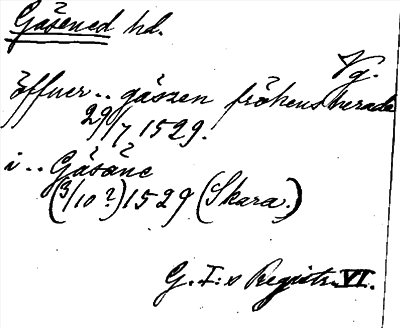 Gäsened hd.
Vg.
öffuer .. gäszen frökens herade
29/7 1529.
i .. Gäsäne
(3/10 ?) 1529 (Skara.)
G. I:s Registr. VI.